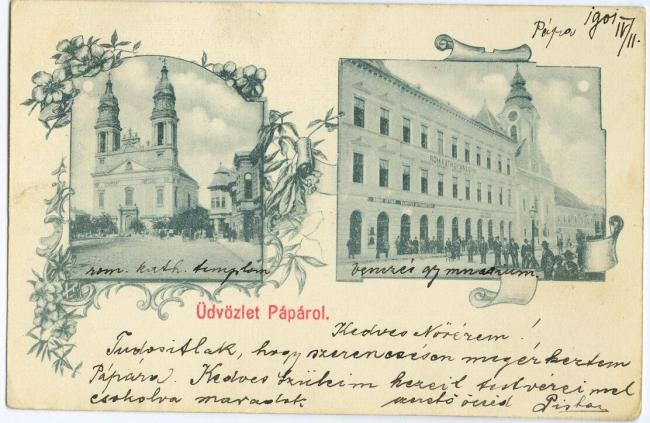 Pápa 1901 IV/11.
rom. kath. templóm
benczés gymnasium
Üdvözlet Pápárol.
Kedves Nővérem!
Tudositlak, hogy szerencsésen megérkeztem
Pápára. Kedves Szüleim kezeit testvéreimel
csokolva maradok szerető öcséd Pista